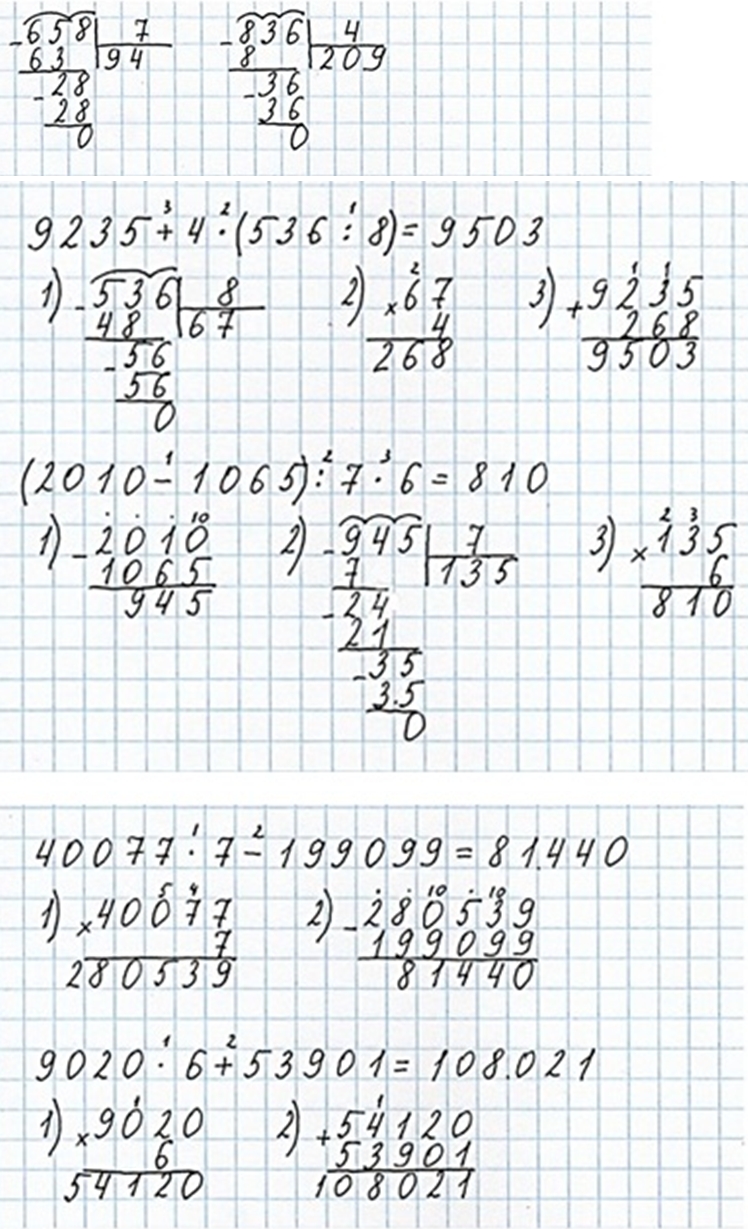 -658 7 -836 4
63 94 8 209
-28 -36
28 36
0 0
3 2 1
9235 + 4 · (536 : 8) = 9503
2 1 1
1) -536 8 2) ×67 3) +9235
48 67 4 268
-56 268 9503
56
0
1 2 3
(2010 - 1065) : 7 · 6 = 810
. . . 10 2 3
1) -2010 2) -945 7 3) ×135
1065 7 135 6
945 -24 810
21
-35
3.5
0
1 2
40077 · 7 - 199099 = 81.440
5 4 . . 10 . 10
1) ×40077 2) -280539
7 199099
280539 81440
1 2
9020 · 6 + 53901 = 108.021
1 1
1) ×9020 2) +54120
6 53901
54120 108021